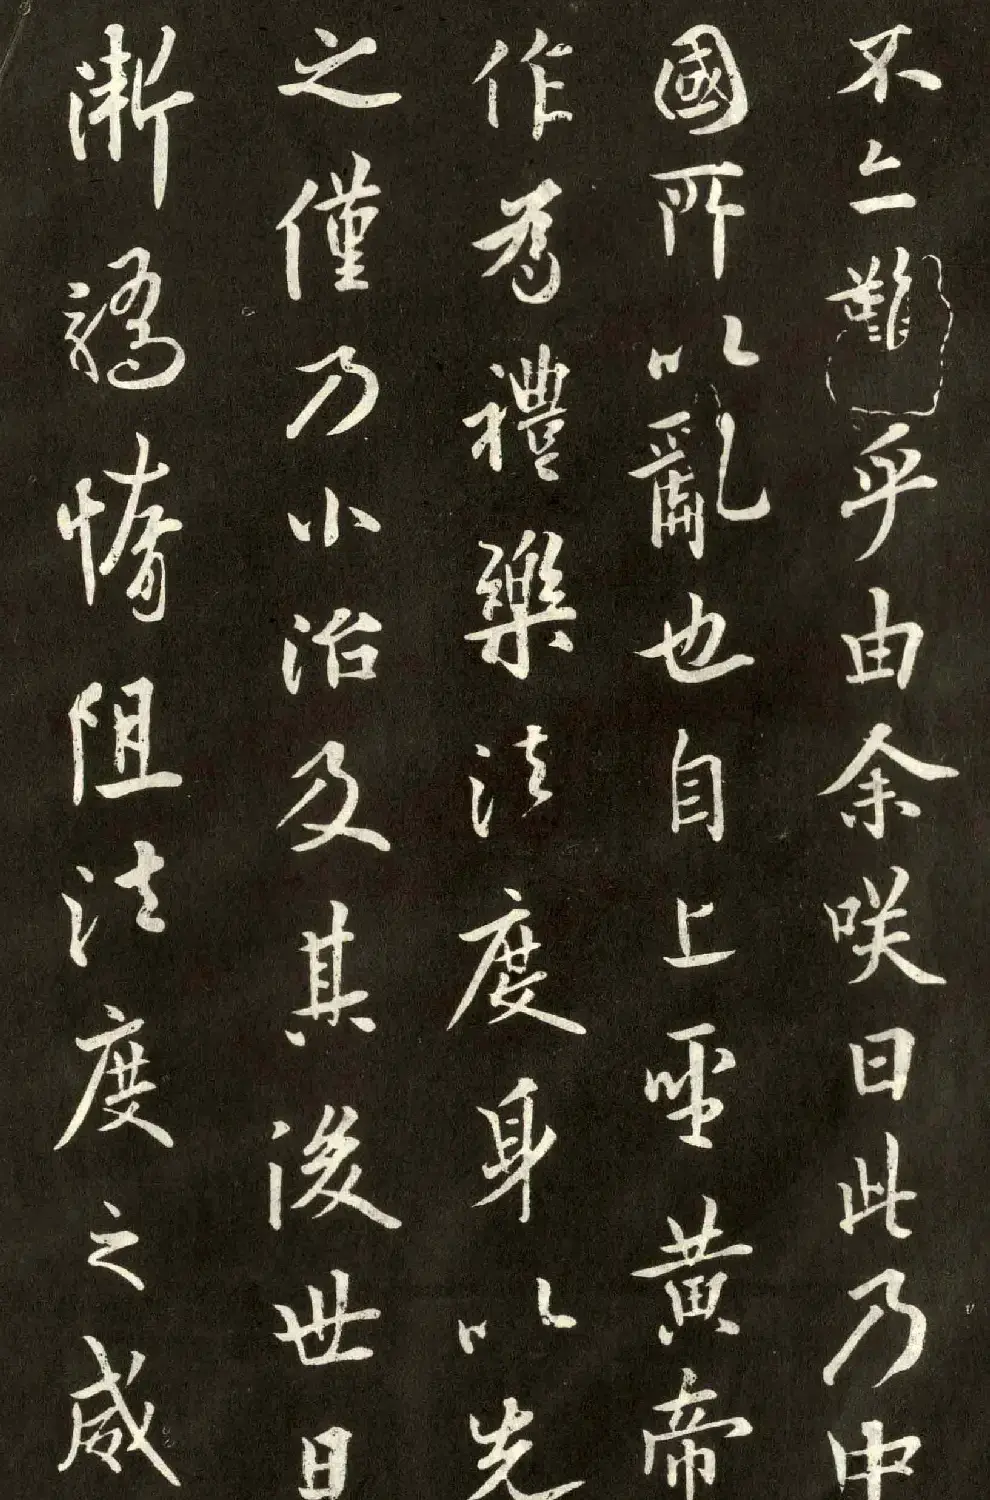 不亦難乎由余咲曰此乃中
國所以亂也自上聖黃帝
作為禮樂法度身以先
之僅乃小治及其後世日
漸驕惰阻法度之威